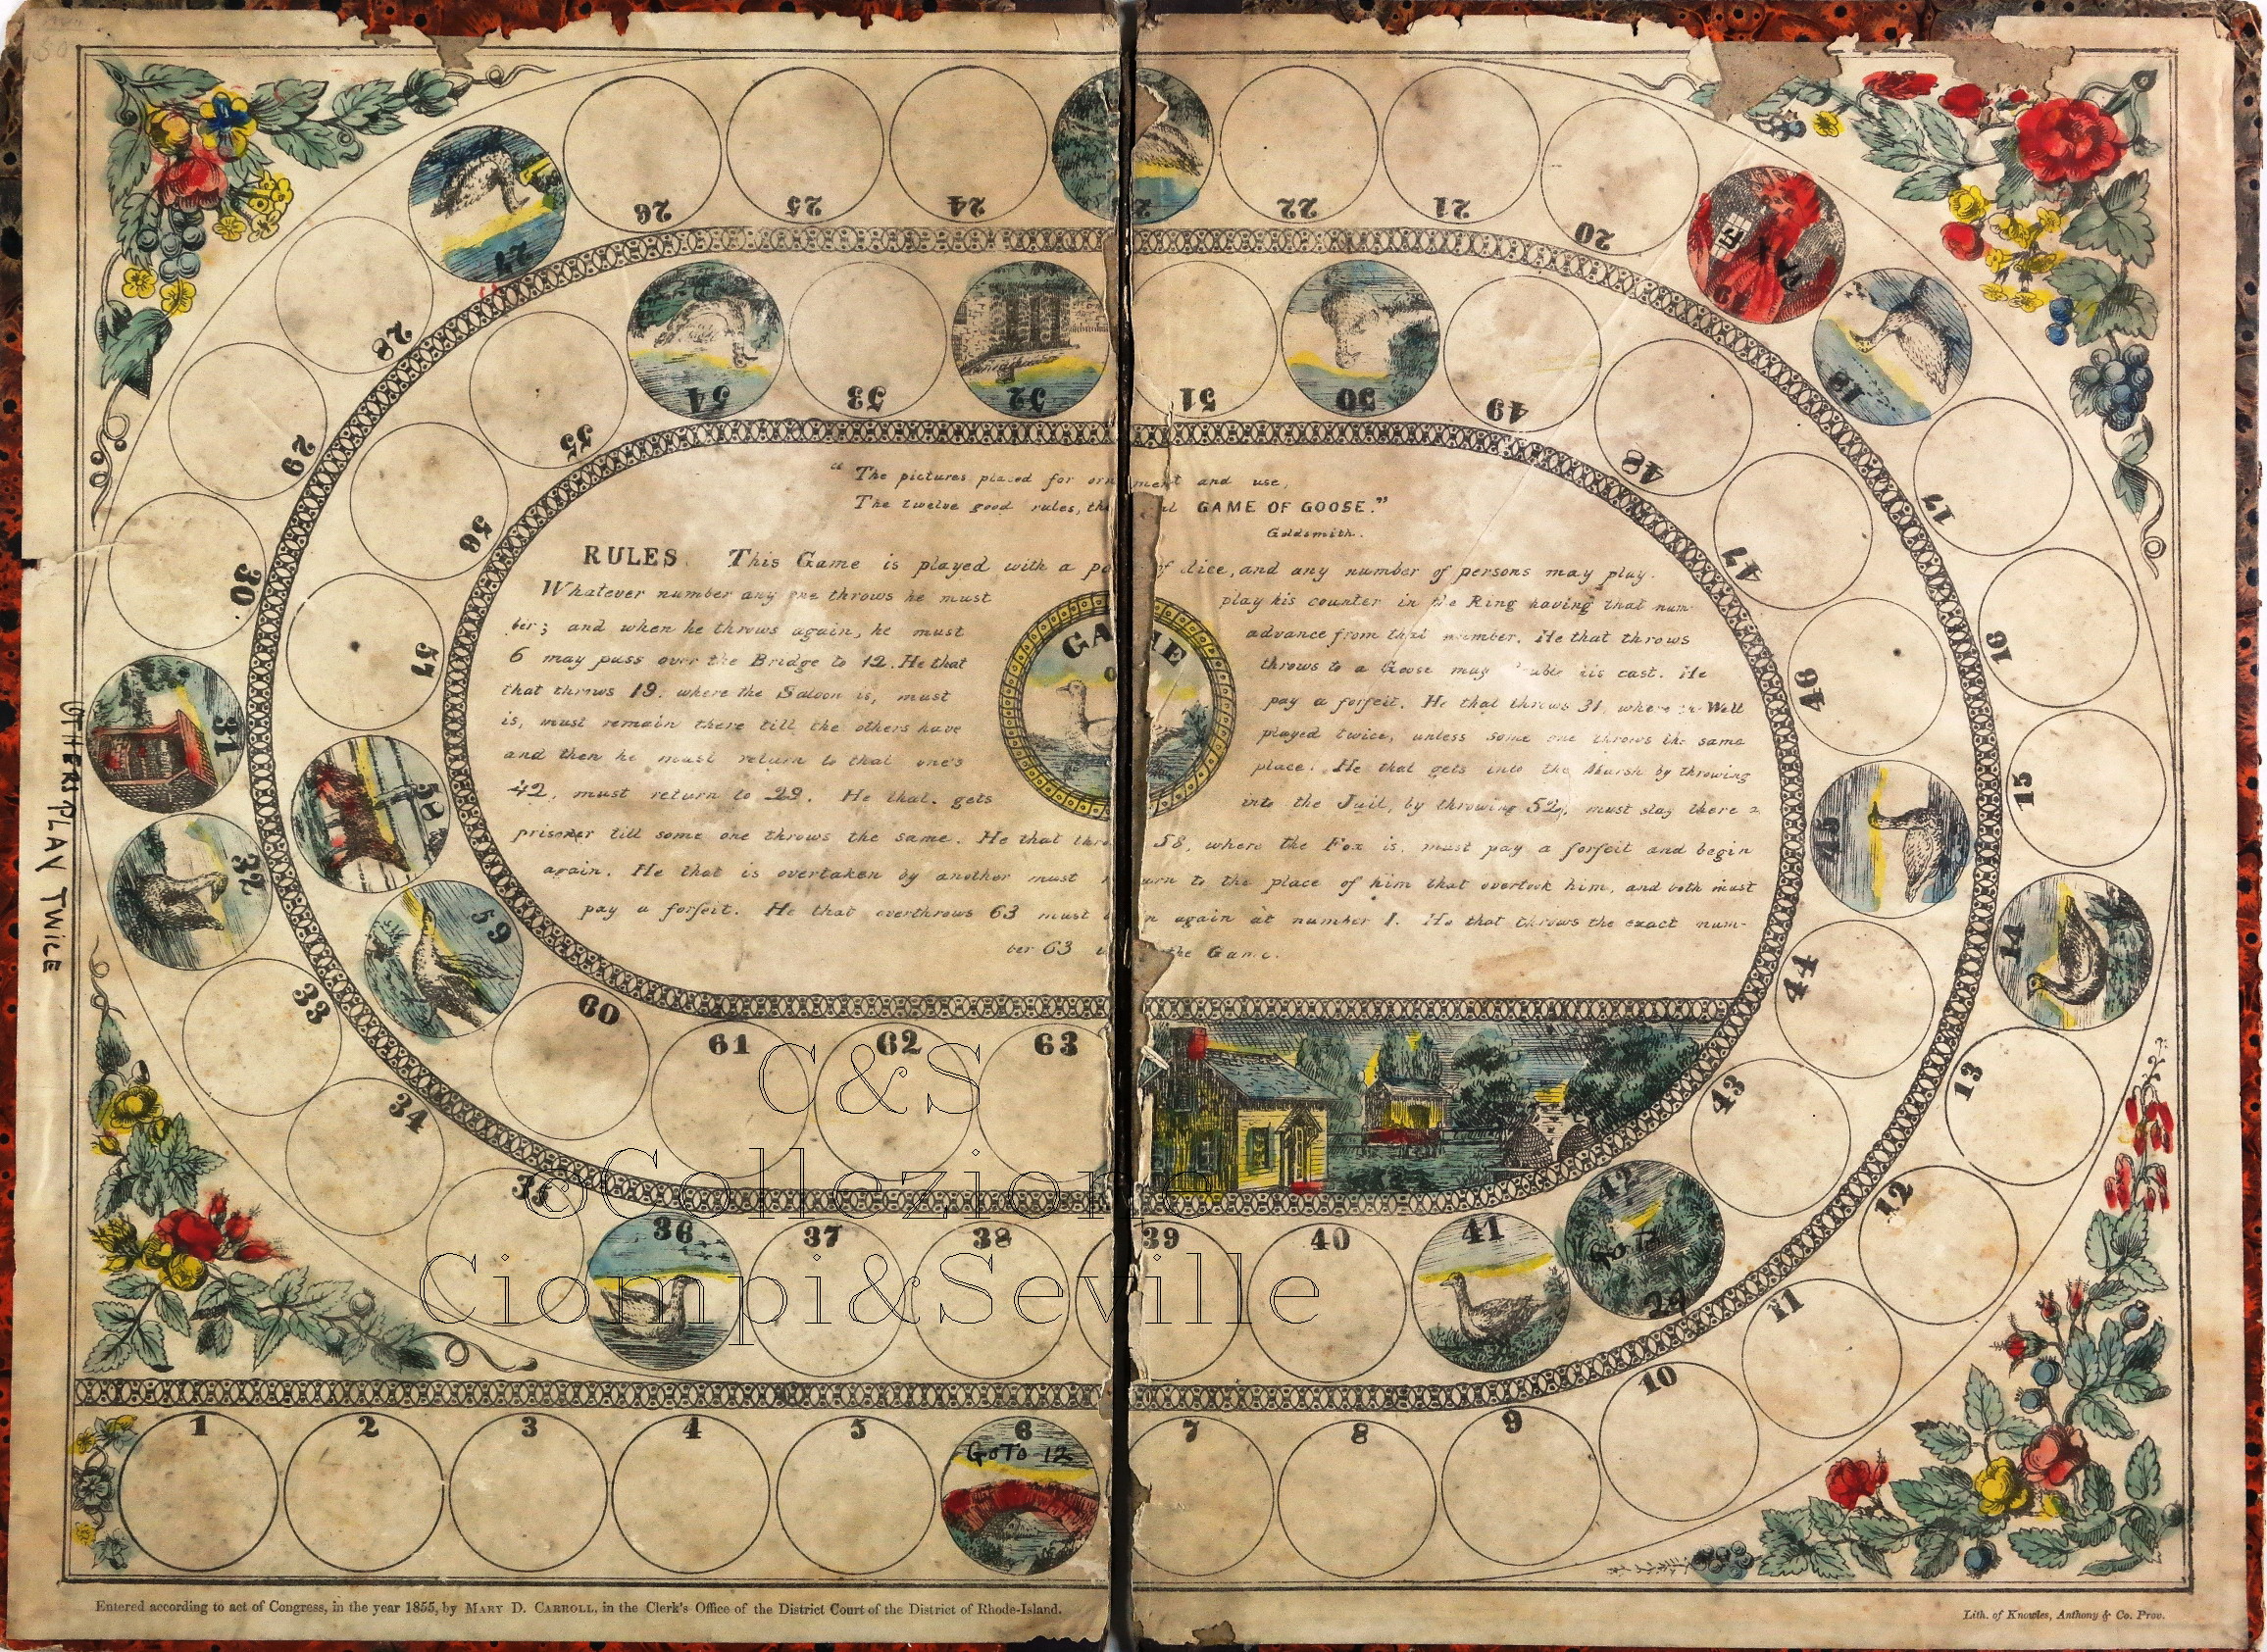 " The pictures placed for ornament and use,
The twelve good rules, the GAME OF GOOSE."
Goldsmith.
RULES. This Game is played with a of dice, and any number of persons may play.
Whatever number any one throws he must play his counter in the Ring having that num-
ber; and when he throws again, he must advance from that number. He that throws
6 may pass over the Bridge to 12. He that throws to a Goose may his cast. He
that throws 19, where the Saloon is, must pay a forfeit. He that throws 31, where Well
is, must remain there till the others have played twice, unless some one throws the same
and then he must return to that one's place. He that gets into the Marsh by throwing
42, must return to 29. He that gets into the Jail, by throwing 52, must stay there a
prisoner till some one throws the same. He that 58, where the Fox is, must pay a forfeit and begin
again. He that is overtaken by another must to the place of him that overtook him, and both must
pay a forfeit. He that overthrows 63 must again at number 1. He that throws the exact num-
ber 63 the Game.
GAME
1
2
3
4
5
6
GoTo 12
7
8
9
10
11
12
13
14
15
16
17
18
19
20
21
22
24
25
26
27
28
29
30
31
32
33
34
35
36
37
38
39
40
41
42
GoTo
29
43
44
45
46
47
48
49
50
51
52
53
54
55
56
57
58
59
60
61
62
63
OTHERS PLAY TWICE
C&S
©Collezione
Ciompi&Seville
Entered according to act of Congress, in the year 1855, by MARY D. CARROLL, in the Clerk's Office of the District Court of the District of Rhode-Island.
Lith. of Knowles, Anthony & Co. Prov.